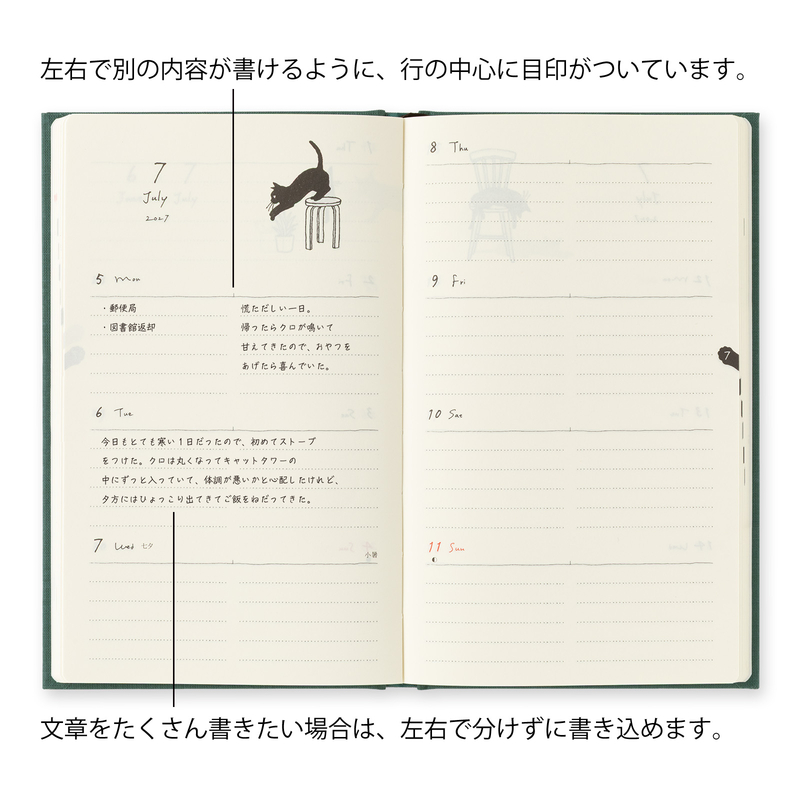 左右で別の内容が書けるように、行の中心に目印がついています。
7
July
2027
5 Mon
・郵便局
・図書館返却
慌ただしい一日。
帰ったらクロが鳴いて
甘えてきたので、おやつを
あげたら喜んでいた。
6 Tue
今日もとても寒い1日だったので、初めてストーブ
をつけた。クロは丸くなってキャットタワーの
中にずっと入っていて、体調が悪いかと心配したけれど、
夕方にはひょっこり出てきてご飯をねだってきた。
7 Wed 七夕
小暑
8 Thu
9 Fri
7
10 Sat
11 Sun
文章をたくさん書きたい場合は、左右で分けずに書き込めます。